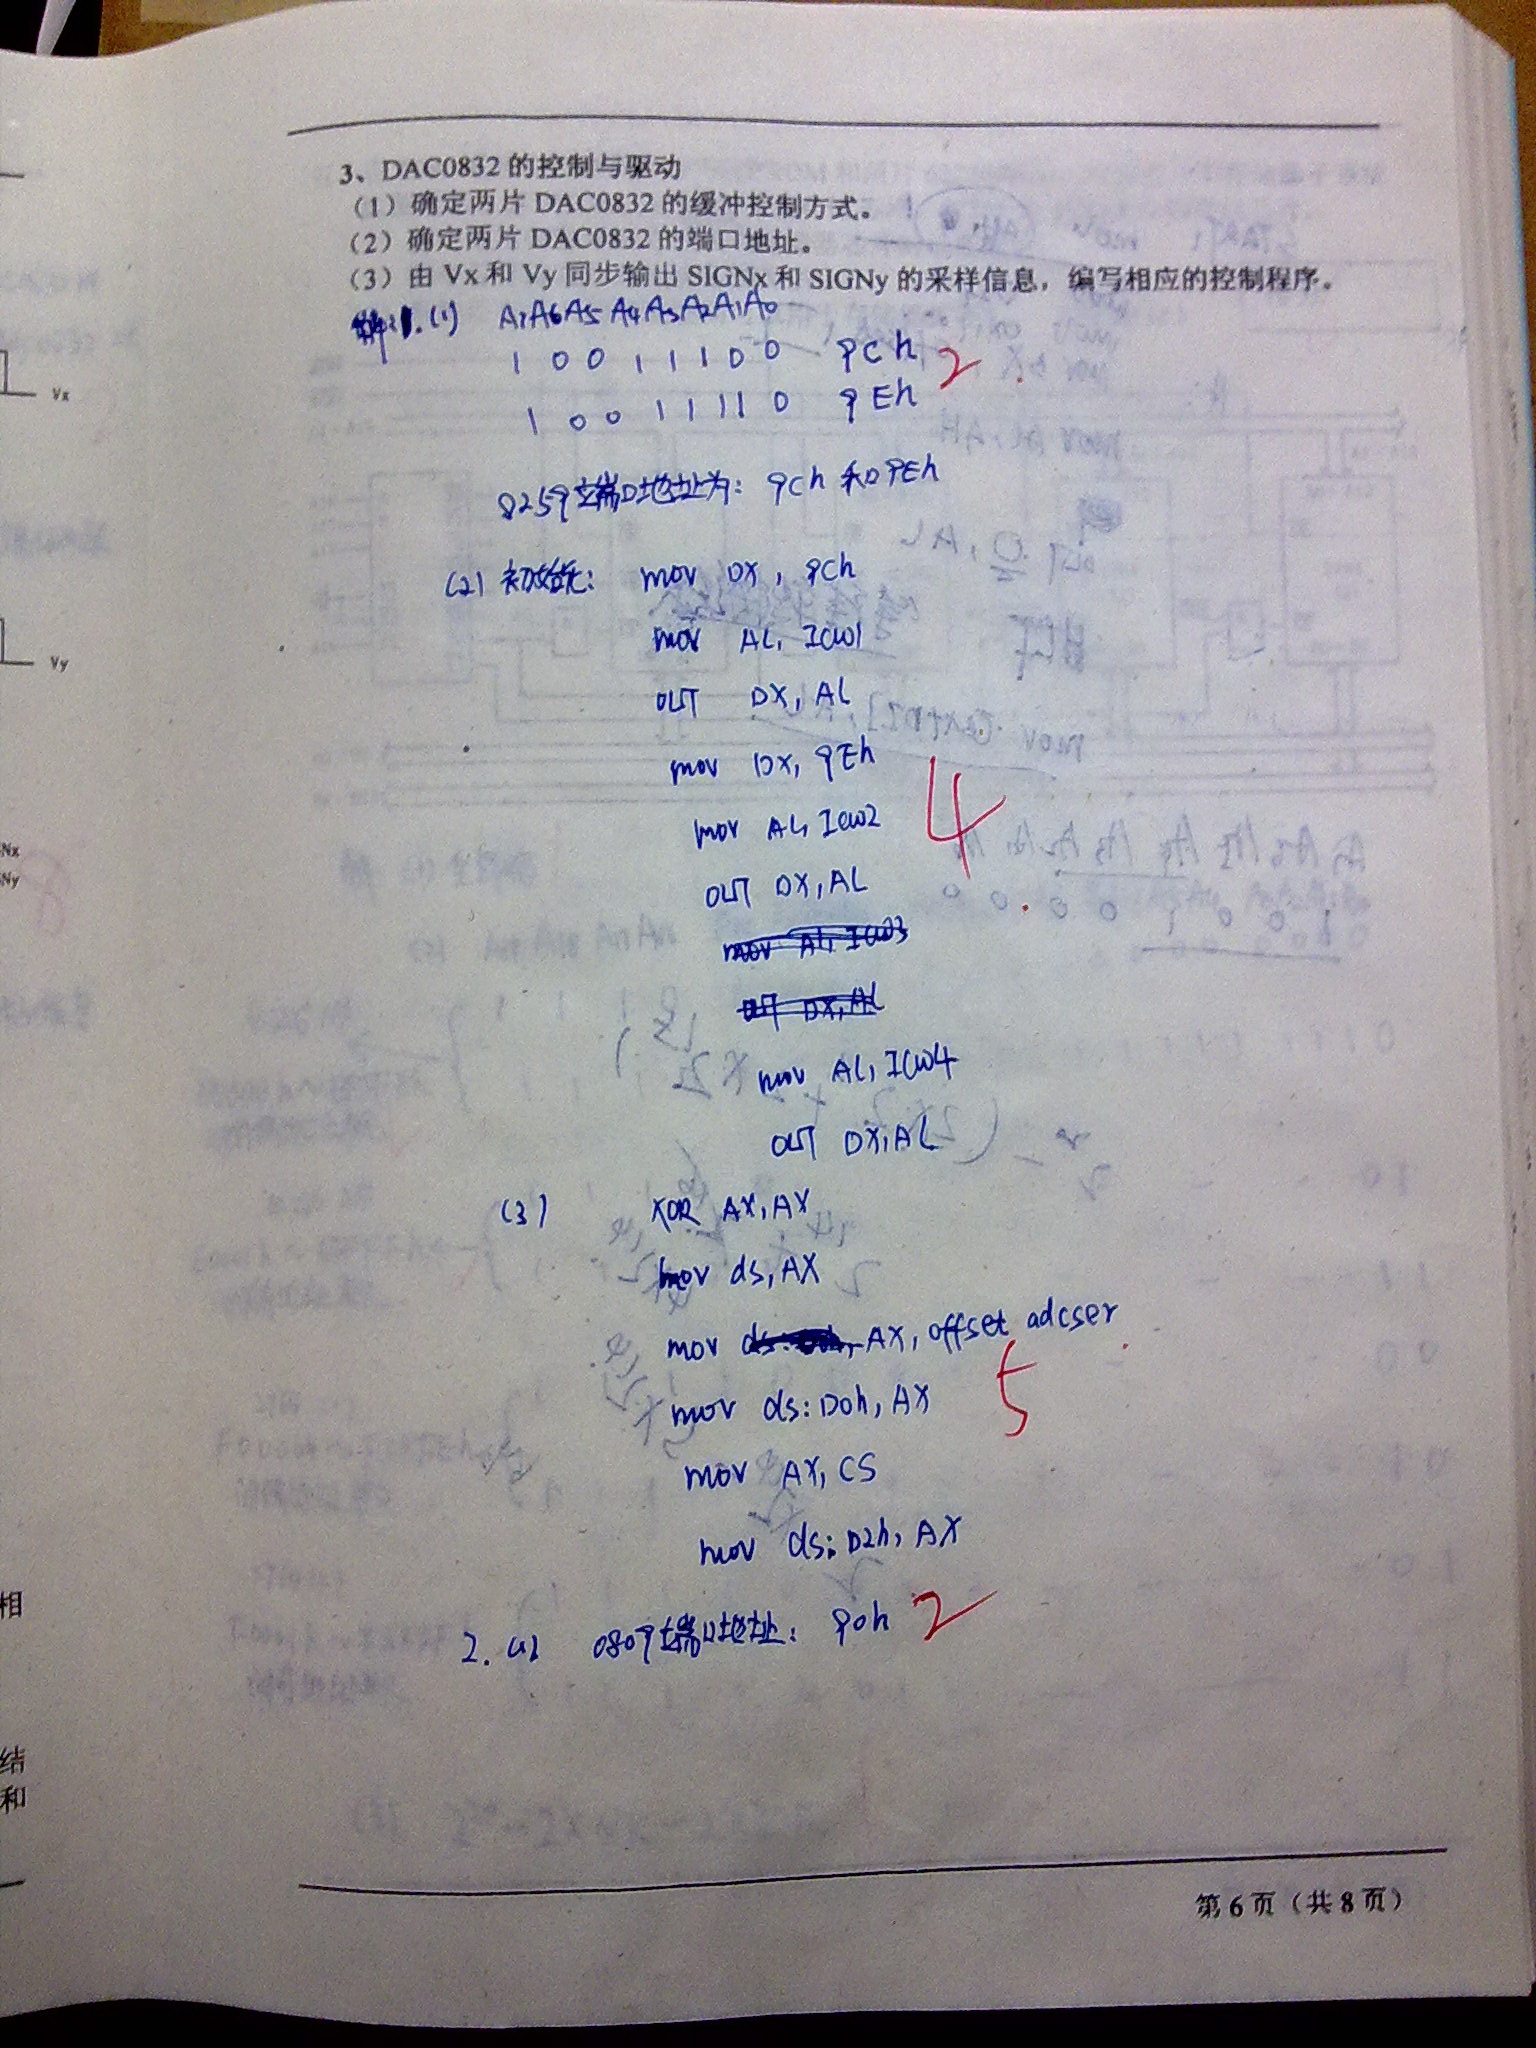 3、DAC0832 的控制与驱动
（1）确定两片 DAC0832 的缓冲控制方式。
（2）确定两片 DAC0832 的端口地址。
（3）由 Vx 和 Vy 同步输出 SIGNx 和 SIGNy 的采样信息，编写相应的控制程序。
解:1.(1) A7A6A5A4A3A2A1A0
1 0 0 1 1 1 0 0 9ch 2
1 0 0 1 1 1 1 0 9Eh
8259端口地址为: 9ch 和 9Eh
(2) 初始化: mov DX, 9ch
mov AL, ICW1
OUT DX, AL
mov DX, 9Eh
mov AL, ICW2
4
OUT DX, AL
mov AL, ICW3
OUT DX, AL
mov AL, ICW4
OUT DX, AL
(3) XOR AX, AX
mov ds, AX
mov AX, offset adcser
mov ds:D0h, AX
5
mov AX, CS
mov ds:D2h, AX
2. (1) 0809端口地址: 90h 2
第 6 页（共 8 页）
Vx
Vy
Nx
Ny
相
结
和